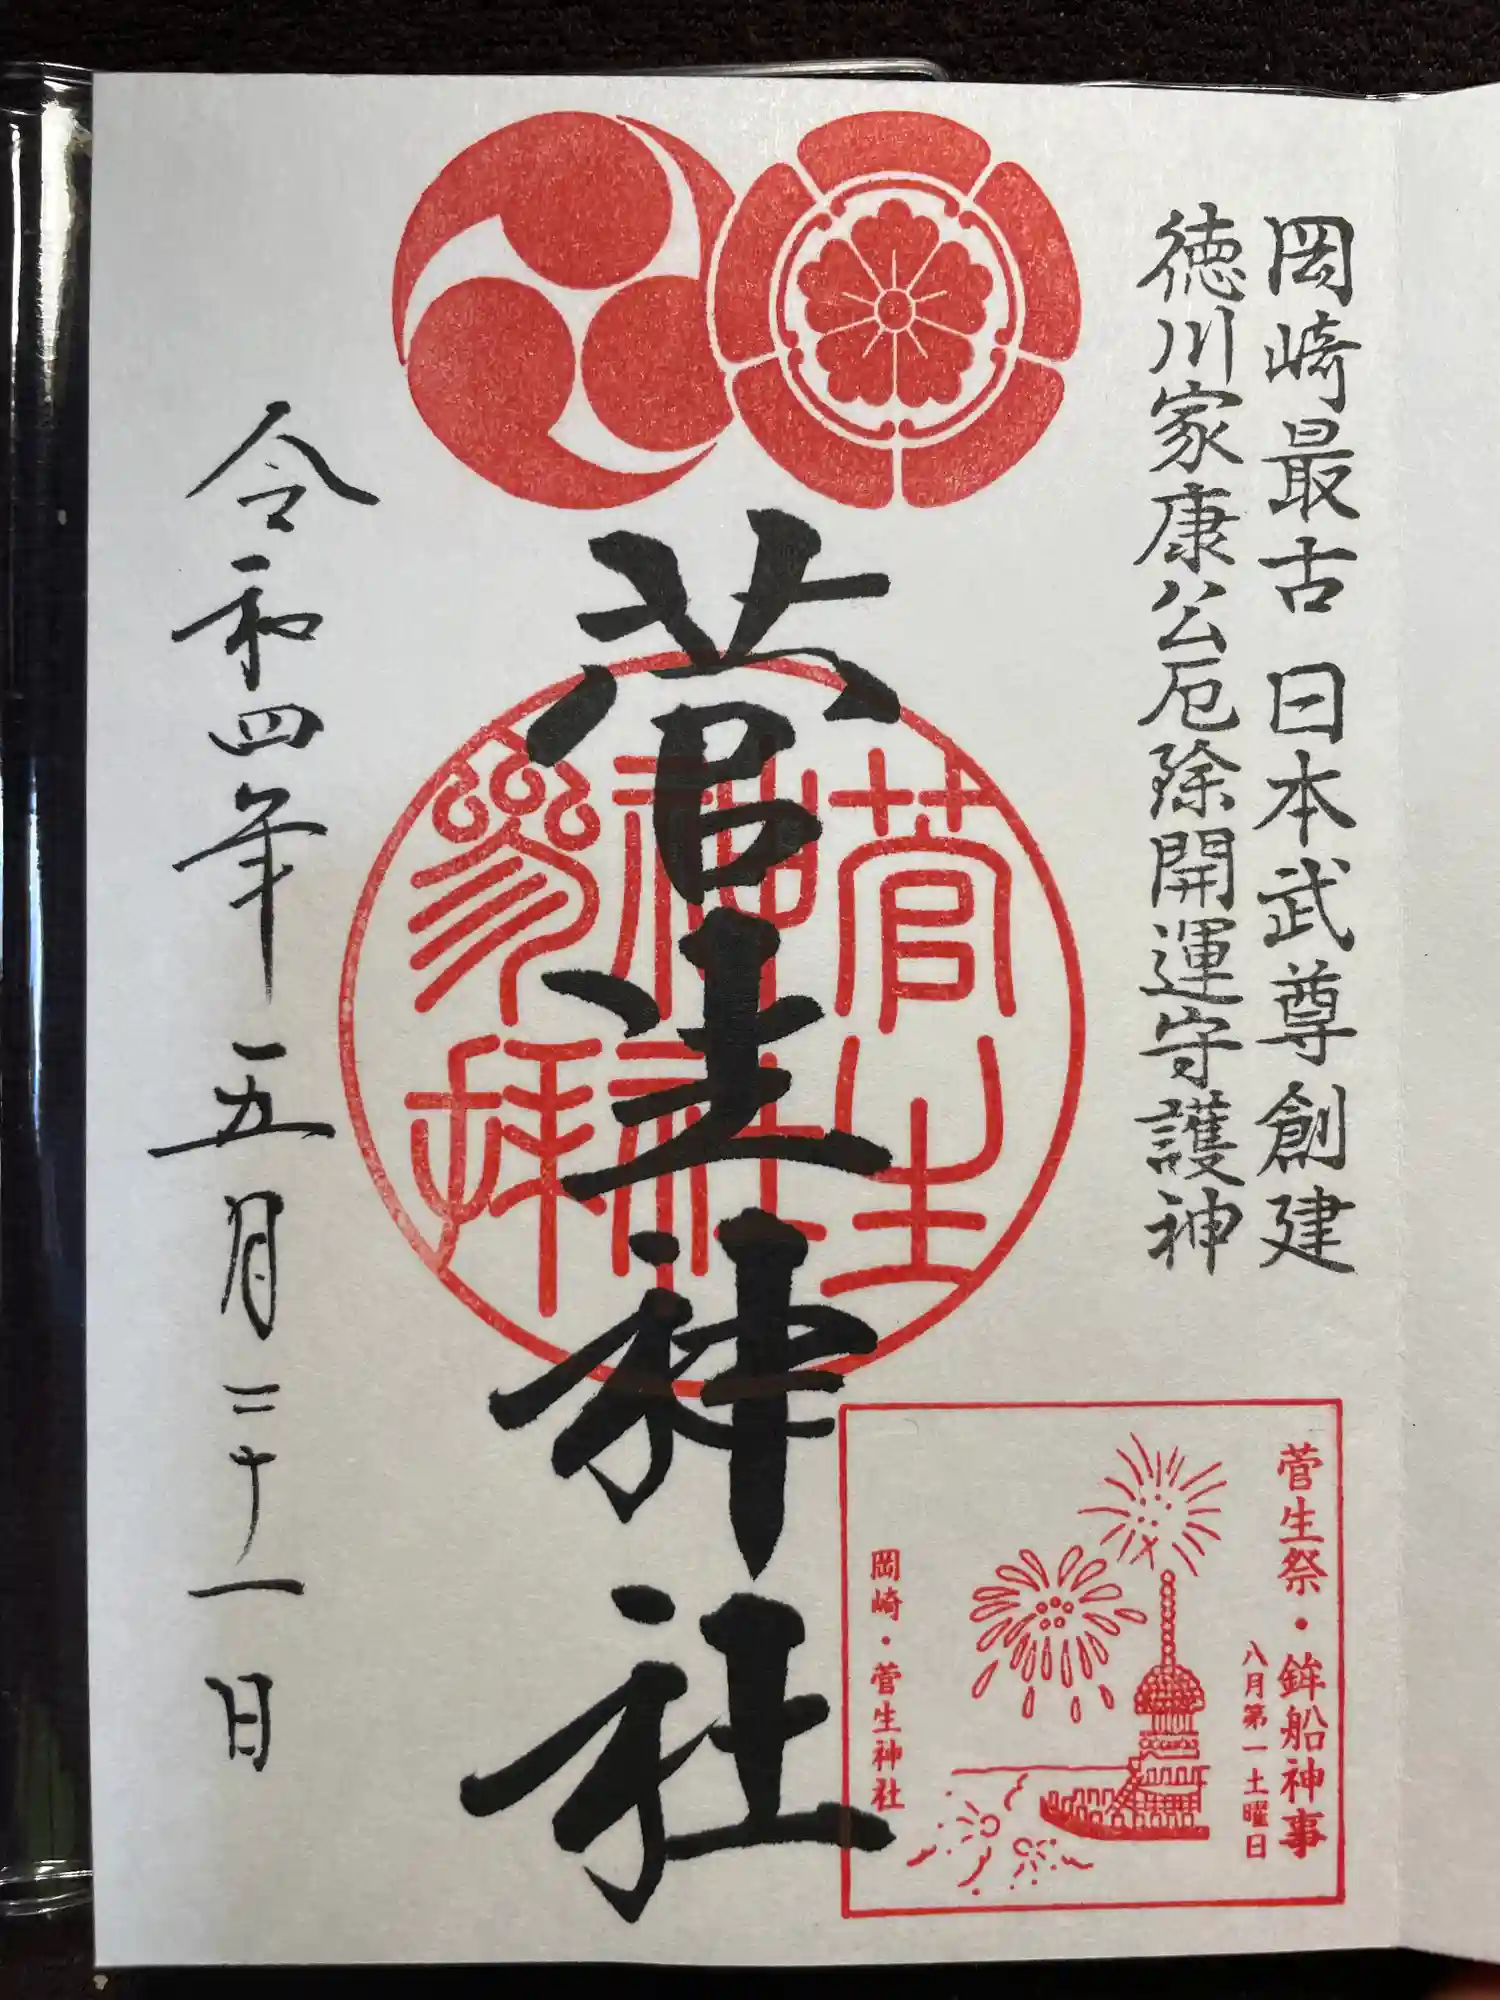 岡崎最古 日本武尊創建
徳川家康公厄除開運守護神
菅生神社
菅生
神社
参拝
令和四年 五月二十一日
菅生祭・鉾船神事
八月第一土曜日
岡崎・菅生神社